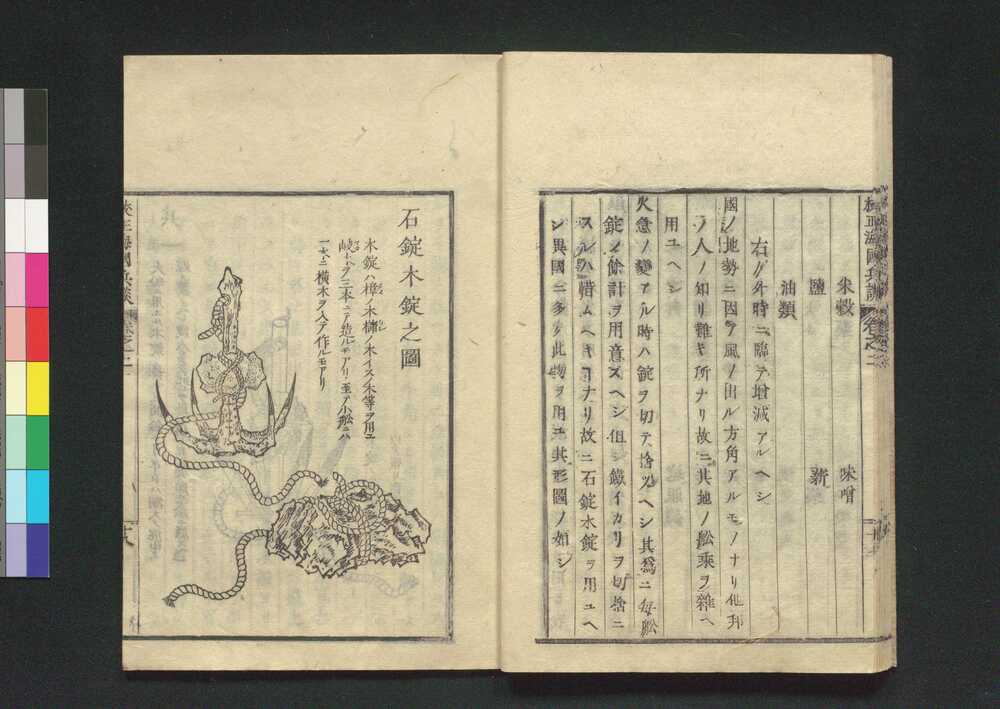 校正海國兵談 卷之二
米穀 味噌
鹽 薪
油類
右ノ外時ニ臨テ増減アルヘシ
國ノ地勢ニ因テ風ノ出ル方角アルモノナリ他邦
ノ人ノ知リ難キ所ナリ故ニ其地ノ舩乘ヲ雜ヘ
用ユヘシ
火急ノ變アル時ハ錠ヲ切テ捨ツヘシ其爲ニ毎舩
錠ノ餘計ヲ用意スヘシ但シ鐵イカリヲ切捨ニ
スルハ惜ムヘキコナリ故ニ石錠木錠ヲ用ユヘ
シ異國ニ多ク此物ヲ用ユ其形圖ノ如シ
石錠木錠之圖
木錠ハ樟ノ木櫧ノ木イスノ木等ヲ用ユ
岐ハ三本ニテ造ルモアリ至テ小舩ニハ
横木ヲ入テ作ルモアリ
校正海國兵談 卷之二